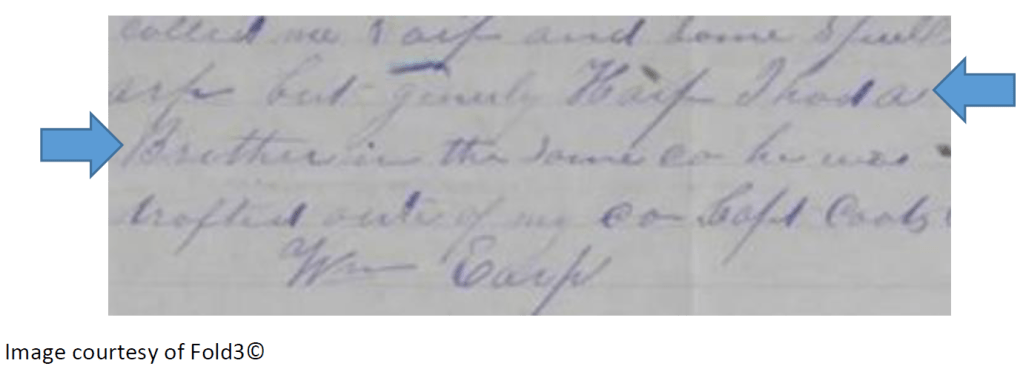 called me Earp and Some Spell
arp but generly Harp I had a
Brother in the Same co he was
drafted oute of my co Capt Cooks
Wm Earp
Image courtesy of Fold3©